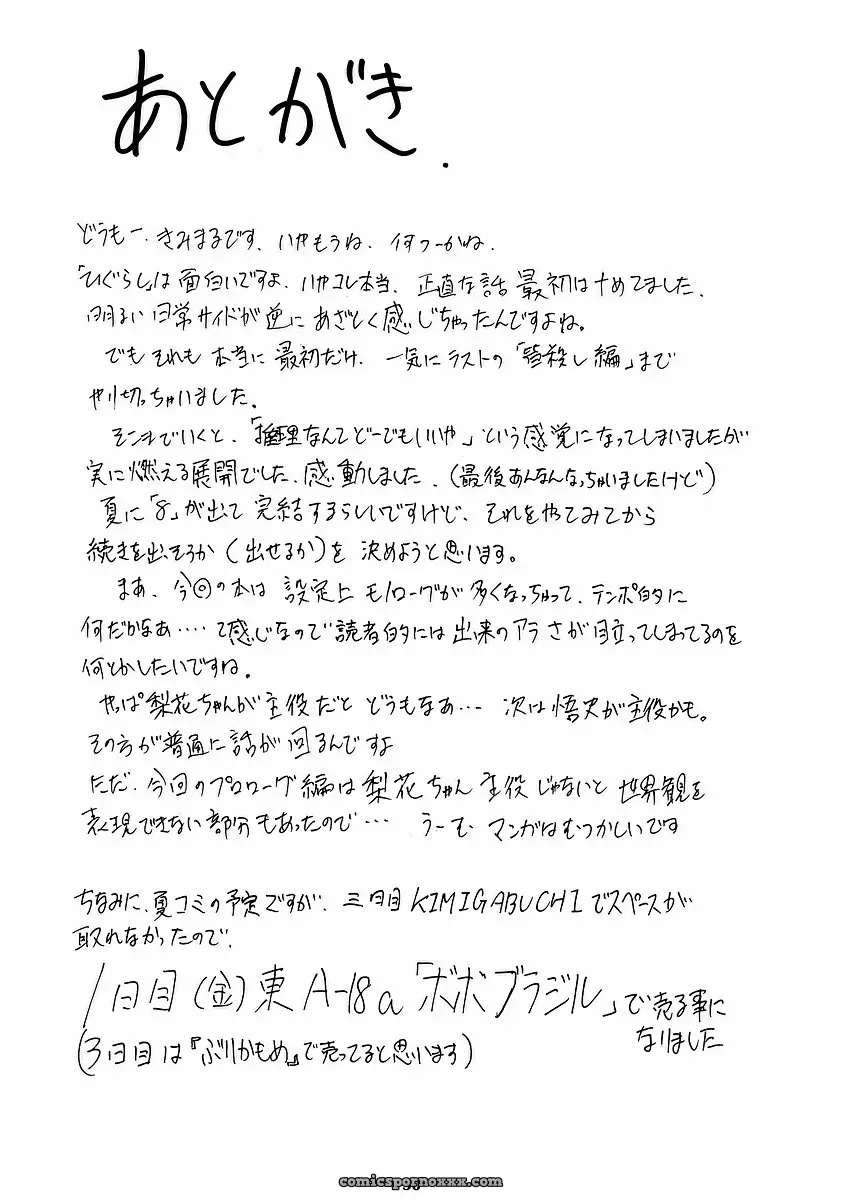 あとがき.
どうもー、きみまるです、いやもうね、何つーかね、
「ひぐらし」は面白いですよ、いやコレ本当、正直な話最初はナめてました、
明るい日常サイドが逆にあざとく感じちゃったんですよね。
でもそれも本当に最初だけ、一気にラストの「皆殺し編」まで
やり切っちゃいました。
そこまでいくと、「推理なんてどーでもいいや」という感覚になってしまいましたが
実に燃える展開でした、感動しました、(最後あんなんなっちゃいましたけど)
夏に「8」が出て完結するらしいですけど、それをやってみてから
続きを出そうか(出せるか)を決めようと思います。
まあ、今回の本は設定上モノローグが多くなっちゃって、テンポ的に
何だかなあ‥‥て感じなので読者的には出来のアラさが目立ってしまってるのを
何とかしたいですね。
やっぱ梨花ちゃんが主役だとどうもなあ… 次は悟史が主役かも。
その方が普通に話が回るんですよ
ただ、今回のプロローグ編は梨花ちゃん主役じゃないと世界観を
表現できない部分もあったので… うーむ、マンガはむつかしいです
ちなみに、夏コミの予定ですが、三日目KIMIGABUCHIでスペースが
取れなかったので、
1日目(金)東A-18a「ボボブラジル」で売る事に
なりました
(3日目は『ぶりかもめ』で売ってると思います)
comicspornoxxx.com